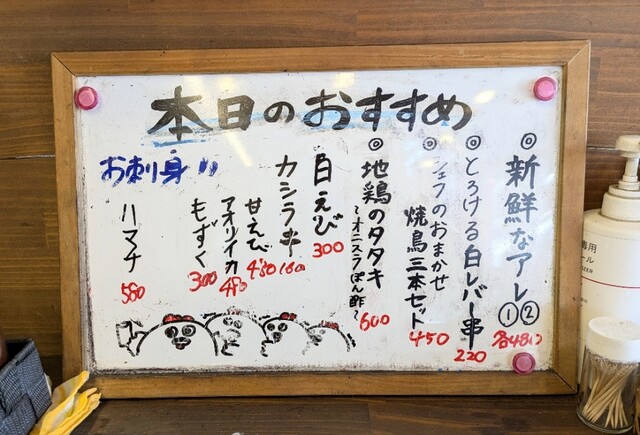 本日のおすすめ
◎新鮮なアレ①②
各480
◎とろける白レバー串
220
◎シェフのおまかせ
焼鳥三本セット
450
◎地鶏のタタキ
〜オニスラぽん酢〜
600
白えび
300
カシラ串
160
お刺身
甘えび
480
アオリイカ
480
もずく
300
ハマチ
580
専用